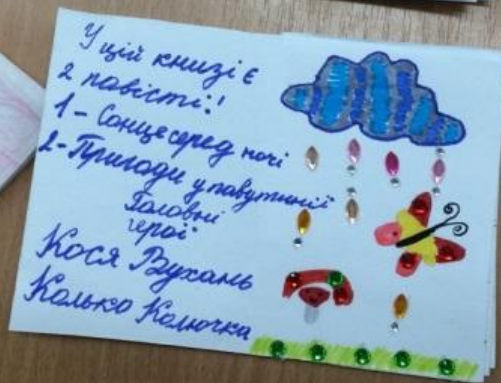 У цій книзі є
2 повісті:!
1 - Сонце серед ночі
2 - Пригоди у павутинні
Головні
герої
Кося Вухань
Колько Колючка